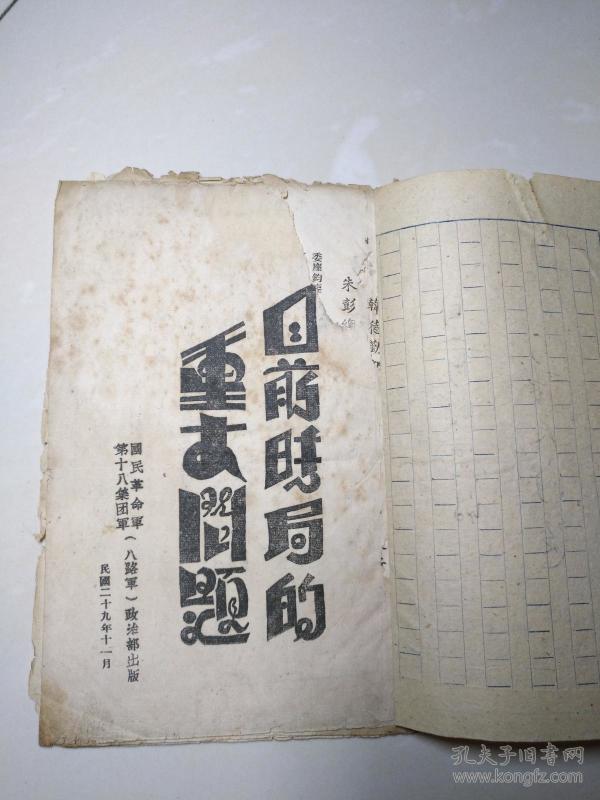 韓德勤
朱彭總
委座鈞座
目前時局的
重要問題
國民革命軍
第十八集团軍（八路軍）政治部出版
民國二十九年十一月
孔夫子旧书网
www.kongfz.com